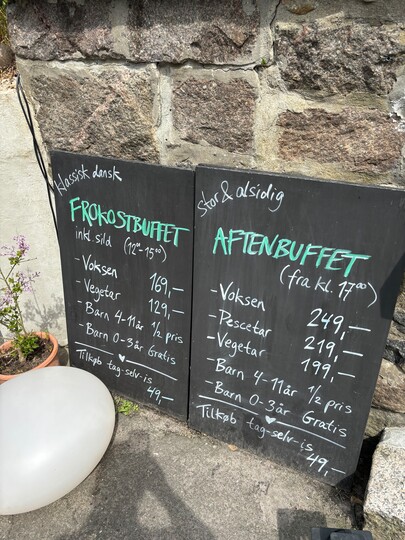 klassisk dansk
FROKOSTBUFFET
inkl. sild (12⁰⁰-15⁰⁰)
- Voksen 169,-
- Vegetar 129,-
- Barn 4-11år 1/2 pris
- Barn 0-3år Gratis
Tilkøb tag-selv-is
49,-
Stor & alsidig
AFTENBUFFET
(fra kl. 17⁰⁰)
- Voksen 249,-
- Pescetar 219,-
- Vegetar 199,-
- Barn 4-11år 1/2 pris
- Barn 0-3år Gratis
Tilkøb tag-selv-is
49,-